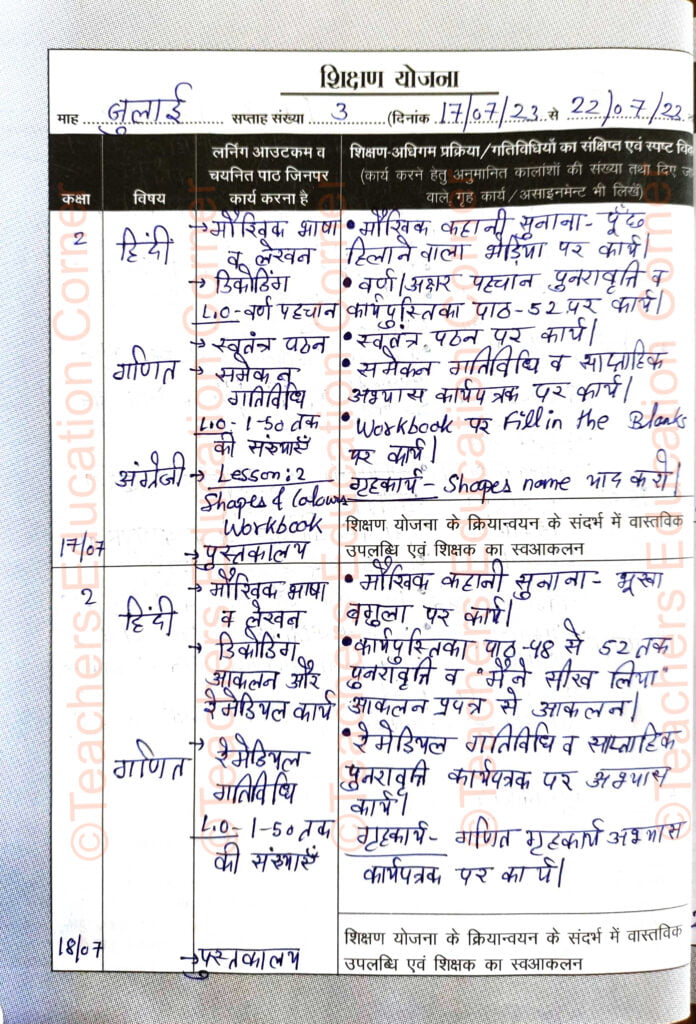 शिक्षण योजना
माह जुलाई सप्ताह संख्या 3 (दिनांक 17/07/23 से 22/07/23
कक्षा
विषय
लर्निंग आउटकम व
चयनित पाठ जिनपर
कार्य करना है
शिक्षण-अधिगम प्रक्रिया/गतिविधियों का संक्षिप्त एवं स्पष्ट वि
(कार्य करने हेतु अनुमानित कालांशों की संख्या तथा दिए ज
वाले गृह कार्य/असाइनमेंट भी लिखें)
2
हिंदी
→ मौखिक भाषा
व लेखन
→ डिकोडिंग
L.O - वर्ण पहचान
→ स्वतंत्र पठन
गणित
→ समेकन
गतिविधि
L.O - 1-50 तक
की संख्याएँ
अंग्रेजी
→ Lesson: 2
Shapes & Colours
Workbook
17/07
→ पुस्तकालय
• मौखिक कहानी सुनाना - पूँछ
हिलाने वाला भेड़िया पर कार्य।
• वर्ण/अक्षर पहचान पुनरावृत्ति व
कार्यपुस्तिका पाठ - 52 पर कार्य।
• स्वतंत्र पठन पर कार्य।
• समेकन गतिविधि व साप्ताहिक
अभ्यास कार्यपत्रक पर कार्य।
• Workbook पर Fill in the Blanks
पर कार्य।
गृहकार्य - Shapes name याद करो।
शिक्षण योजना के क्रियान्वयन के संदर्भ में वास्तविक
उपलब्धि एवं शिक्षक का स्वआकलन
2
हिंदी
→ मौखिक भाषा
व लेखन
→ डिकोडिंग
आकलन और
रेमेडियल कार्य
गणित
→ रेमेडियल
गतिविधि
L.O - 1-50 तक
की संख्याएँ
18/07
→ पुस्तकालय
• मौखिक कहानी सुनाना - भूखा
बगुला पर कार्य।
• कार्यपुस्तिका पाठ - 48 से 52 तक
पुनरावृत्ति व "मैंने सीख लिया"
आकलन प्रपत्र से आकलन।
• रेमेडियल गतिविधि व साप्ताहिक
पुनरावृत्ति कार्यपत्रक पर अभ्यास
कार्य।
गृहकार्य - गणित गृहकार्य अभ्यास
कार्यपत्रक पर कार्य।
शिक्षण योजना के क्रियान्वयन के संदर्भ में वास्तविक
उपलब्धि एवं शिक्षक का स्वआकलन
©Teachers Education Corner
©Teachers Education Corner
©Teachers Education Corner
©Teachers Education Corner